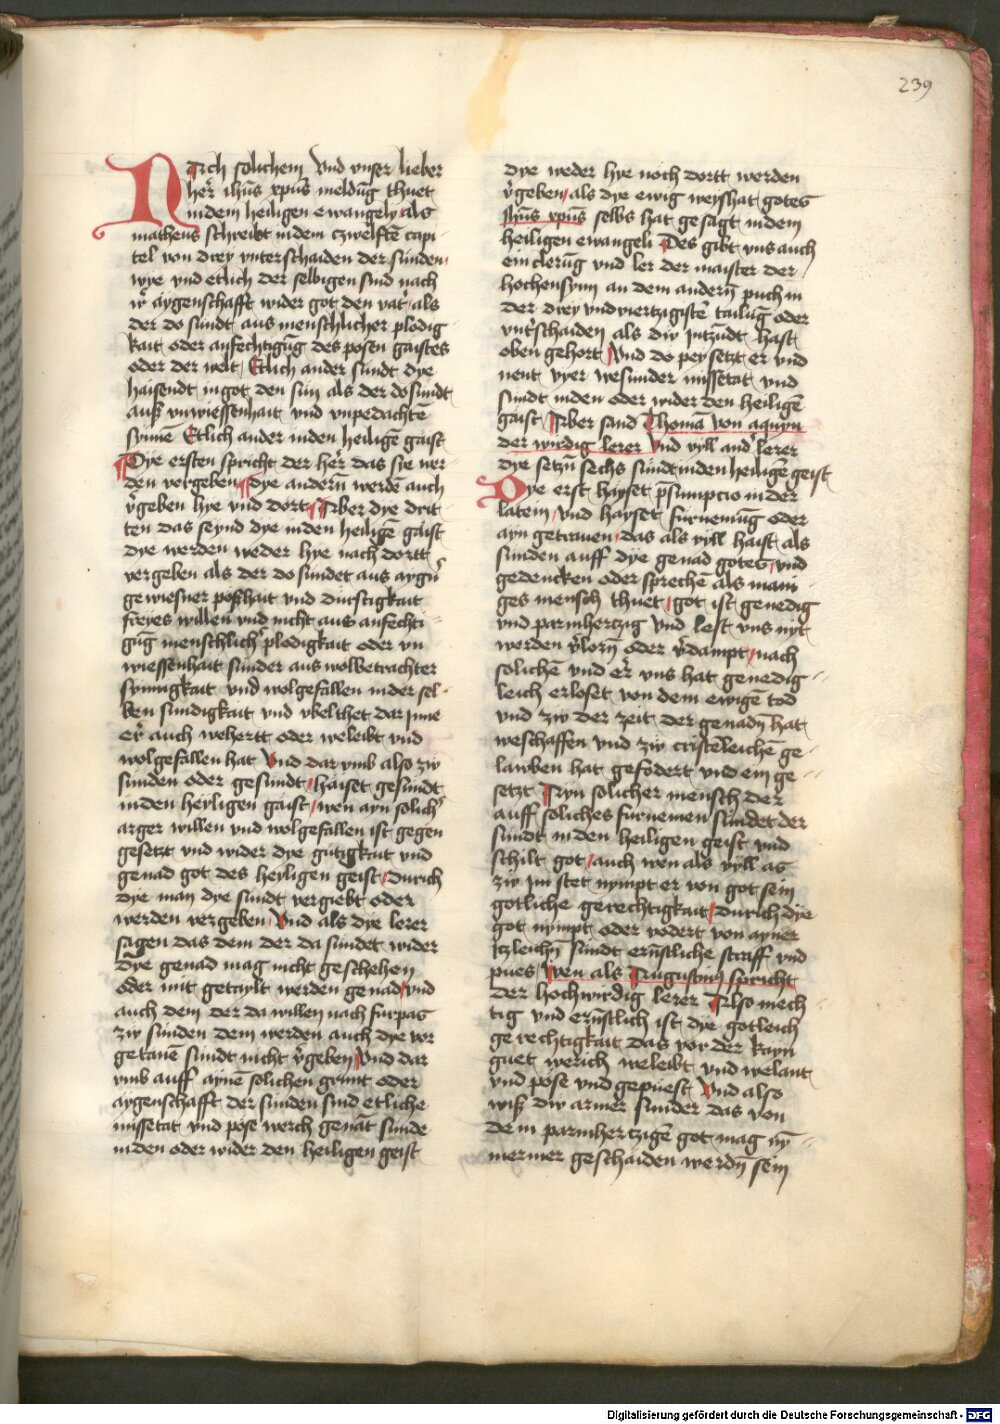 239
Nach solichem Vnd vnser lieber
her̄ ihūs xpūs meldūg thuet
indem heiligen ewangely als
matheus schreibt indem czwelften capi
tel von drey vnterschaiden der sunden
wye vnd etlich der selbigen sind nach
ir̄ aygenschafft wider got den vat̄ als
der do sundt aus menschlicher plodig
kait oder anfechtigūg des posen gaistes
oder der welt Etlich ander sundt dye
haisendt ingot den sun als der do sundt
auß vnwissenhait vnd vnpedachtē
synnē Etlich ander inden heiligē gaist
Dye ersten spricht der her̄ das sye wer
den vergeben Dye andern̄ werdē auch
v̄geben hye vnd dort Aber dye drit
ten das seynd dye inden heiligē gaist
dye werden weder hye nach dortt
vergeben als der do sundet aus aygn̄
gewiesner poßhait vnd durstigkait
freyes willen vnd nicht aus anfechti
gūg menschlich̄ plodigkait oder vn
wiessenhait sunder aus wolbetrachter
synnigkait vnd wolgefallen inder sel
ben sundigkait vnd vbelthet dar jnne
er̄ auch wehertt oder weleibt vnd
wolgefallen hat Vnd dar vmb also zw
sunden oder gesundt haiset gesundt
inden heyligen gaist wen ayn solich̄
arger willen vnd wolgefallen ist gegen
gesetzt vnd wider dye gutigkait vnd
genad got des heyligen geist durich
dye man dye sundt vergiebt oder
werden vergeben Vnd als dye lerer
sagen das dem der da sundet wider
dye genad mag nicht geschehen
oder mit getaylt werden genad vnd
auch dem der da willen nach furpas
zw sunden dem werden auch dye vor
getanē sundt nicht v̄geben Vnd dar
vmb auff aynē solichen grunt oder
aygenschafft der sunden sind etliche
missetat vnd pose werch genāt sunde
inden oder wider den heiligen geist
dye weder hye noch dortt werden
v̄geben als dye ewig weyshat gotes
ihūs xpūs selbs hat gesagt indem
heiligen ewangeli Des gibt vns auch
ein clerūg vnd ler der maister der
hochensynn an dem andern̄ puch in
der drey vnd viertzigistē tailūg oder
vnt̄schaiden als dw jntzūdt hast
oben gehort Vnd do pey setzt er vnd
nent vyer wesunder missetat vnd
sundt inden oder wider den heiligē
gaist Aber sand Thomā von aquyn
der wirdig lerer Vnd vyll and̄ lerer
dye setzn̄ sechs sundt inden heiligē geist
Dye erst hayset p̄sumpcio in der
latein vnd hayset furnemūg oder
ayn getrauen das als vyll haist als
sunden auff dye genad gotes vnd
gedencken oder sprechē als mani
ges mensch thuet got ist genedig
vnd parmhertzig vnd lest vns nyt
werden v̄lorn̄ oder v̄dampt nach
solichē vnd er̄ vns hat genedig
leich erloset von dem ewigē tod
vnd zw der zeit der genadn̄ hat
weschaffen vnd zw cristēleichē ge
lauben hat gefodert vnd ein ge
setzt Ayn solicher mensch der
auff soliches furnemen sundet der
sundt inden heiligen geist vnd
schilt got auch wen als vyll as
zw jm stet nympt er von got sein
gotliche gerechtigkait durich dye
got nympt oder vodert von ayner
itzleichn̄ sundt ern̄stliche straff vnd
pues Wen als Augustin9 spricht
der hochwirdig lerer Also mech
tig vnd ern̄stlich ist dye gotleich
gerechtigkait das vor der kayn
guet werich weleibt vnd welant
vnd pose vnd gepuest Vnd also
wiß dw armer sunder das von
dem parmhertzigē got mag ny̅
mermer geschaiden werdn̄ sein
Digitalisierung gefördert durch die Deutsche Forschungsgemeinschaft - DFG